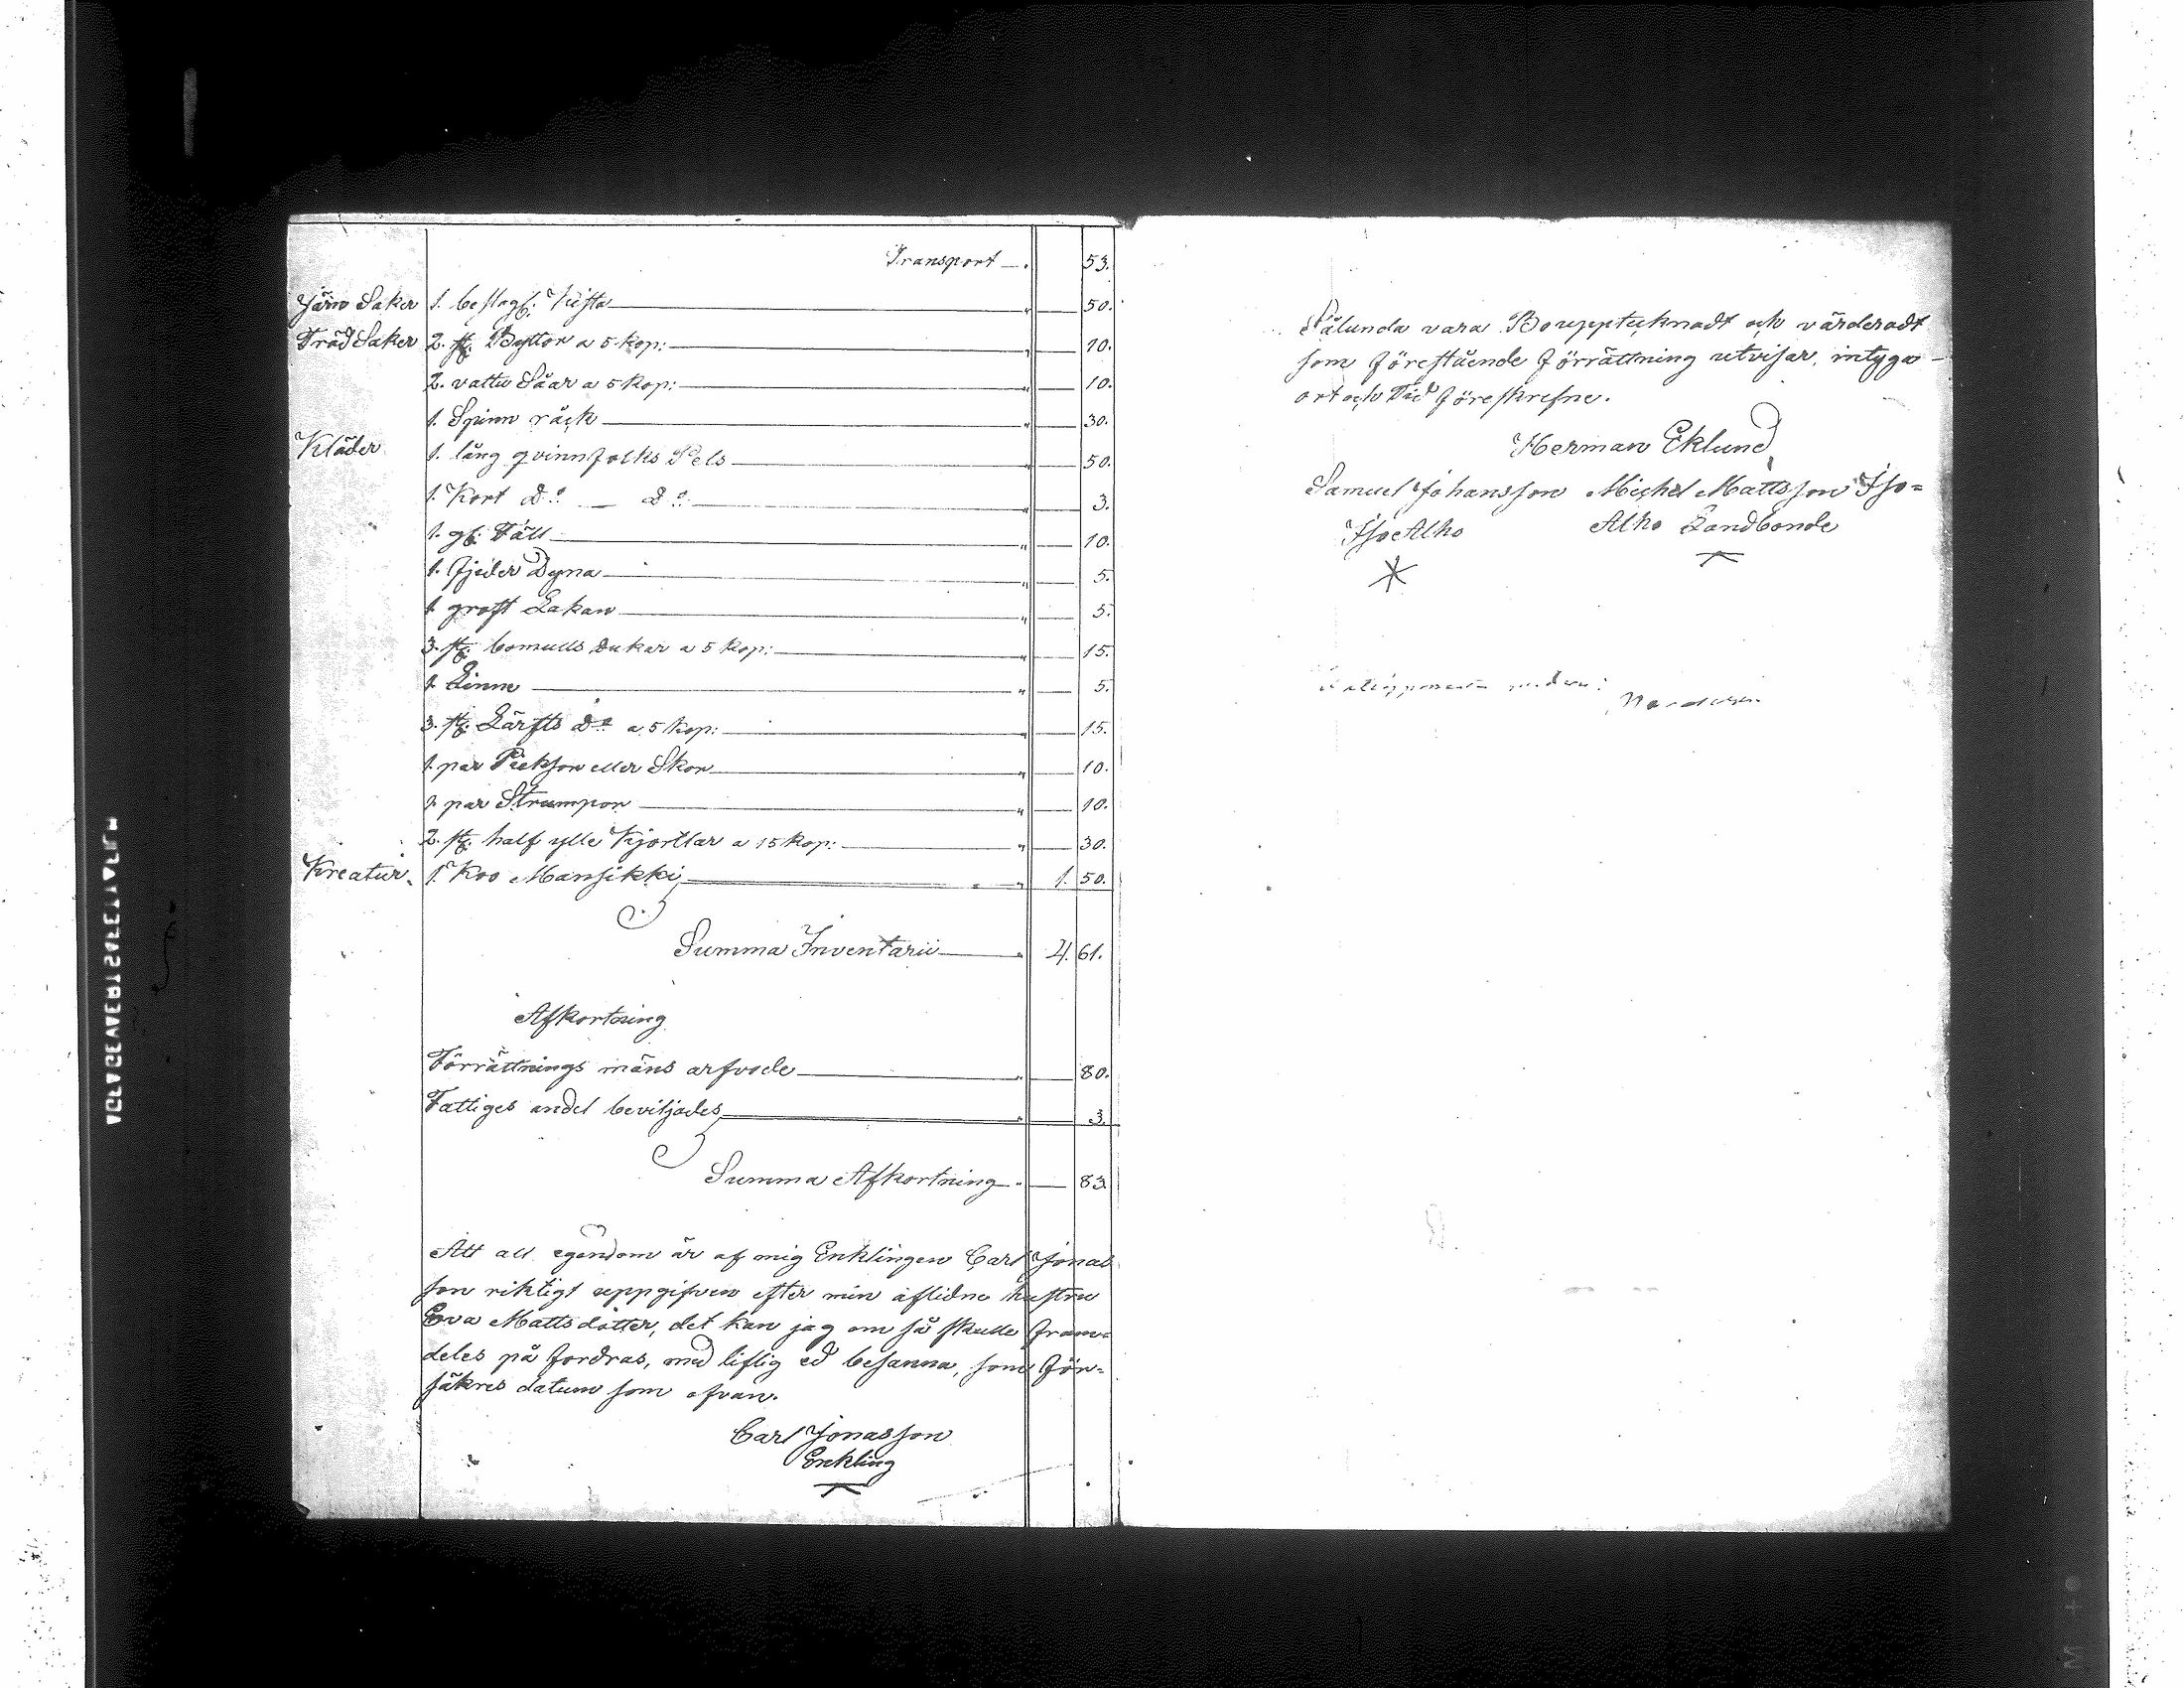 Transport — 53.
Järn Saker 1. beslagf. Kista — " — 50.
Träd Saker 2. st. Byttor a 5 kop: — " — 10.
2. vattu Såar a 5 kop: — " — 10.
1. Spinn råck — " — 30.
Kläder 1. lång qvinnfolks Pels — " — 50.
1. Kort Do — Do — " — 3.
1. gl. Fäll — " — 10.
1. fjeder Dyna — " — 5.
1 groft Lakan — " — 5.
3. st. bomulls Dukar a 5 kop: — " — 15.
1 Linne — " — 5.
3. st. Lärfts Do a 5 kop: — " — 15.
1. par Pieksor eller Skor — " — 10.
1 par Strumpor — " — 10.
2. st. half ylle Kjortlar a 15 kop: — " — 30.
Kreatur. 1. Koo Mansikki — " 1. 50.
Summa Inventarii — " 4. 61.
Afkortning
Förrättnings mäns arfvode — " — 80.
Fattiges andel beviljades — " — 3.
Summa Afkortning — 83
Att all egendom är af mig Enklingen Carl Jonas
son riktigt uppgifven efter min aflidne hustru
Eva Mattsdotter, det kan jag om så skulle fram=
deles på fordras, med liflig ed besanna, som för=
säkres datum som ofvan.
Carl Jonasson
Enkling
Sålunda vara Boupptecknadt och värderadt
som förestående förrättning utvisar, intyga
ort och Tid föreskrefne.
Herman Eklund
Samuel Johansson Michel Mattsson Iso=
Iso Alho Alho Landbonde